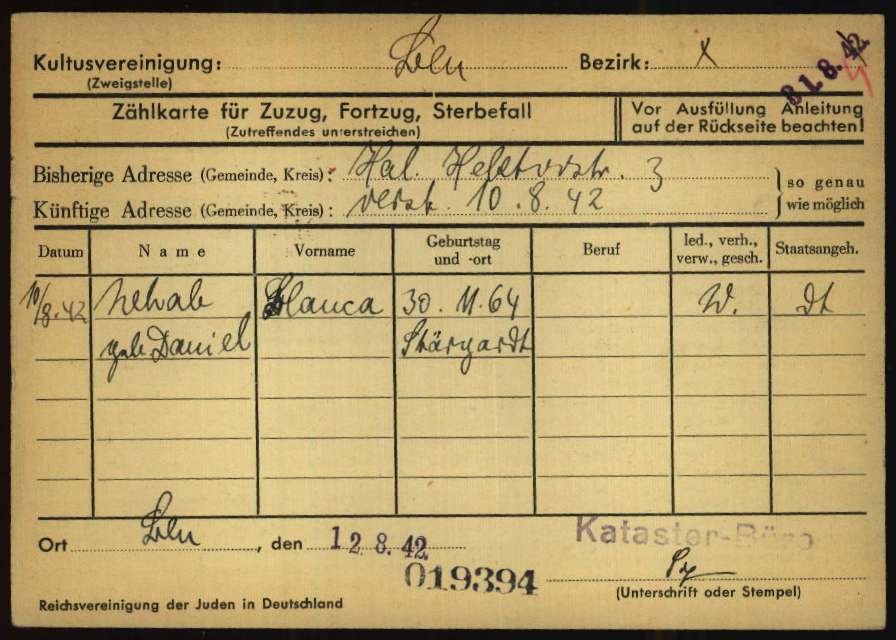 Kultusvereinigung: Bln Bezirk: X
(Zweigstelle)
31.8.42
Zählkarte für Zuzug, Fortzug, Sterbefall
(Zutreffendes unterstreichen)
Vor Ausfüllung Anleitung
auf der Rückseite beachten!
Bisherige Adresse (Gemeinde, Kreis): Hal. 3
Künftige Adresse (Gemeinde, Kreis): verst. 10.8.42
so genau
wie möglich
Datum Name Vorname Geburtstag und -ort Beruf led., verh., verw., gesch. Staatsangeh.
10/8.42 Blanca 30.11.64 W. dt
geb Daniel Stargardt
Ort Bln, den 12.8.42
Kataster-Büro
019394
(Unterschrift oder Stempel)
Reichsvereinigung der Juden in Deutschland